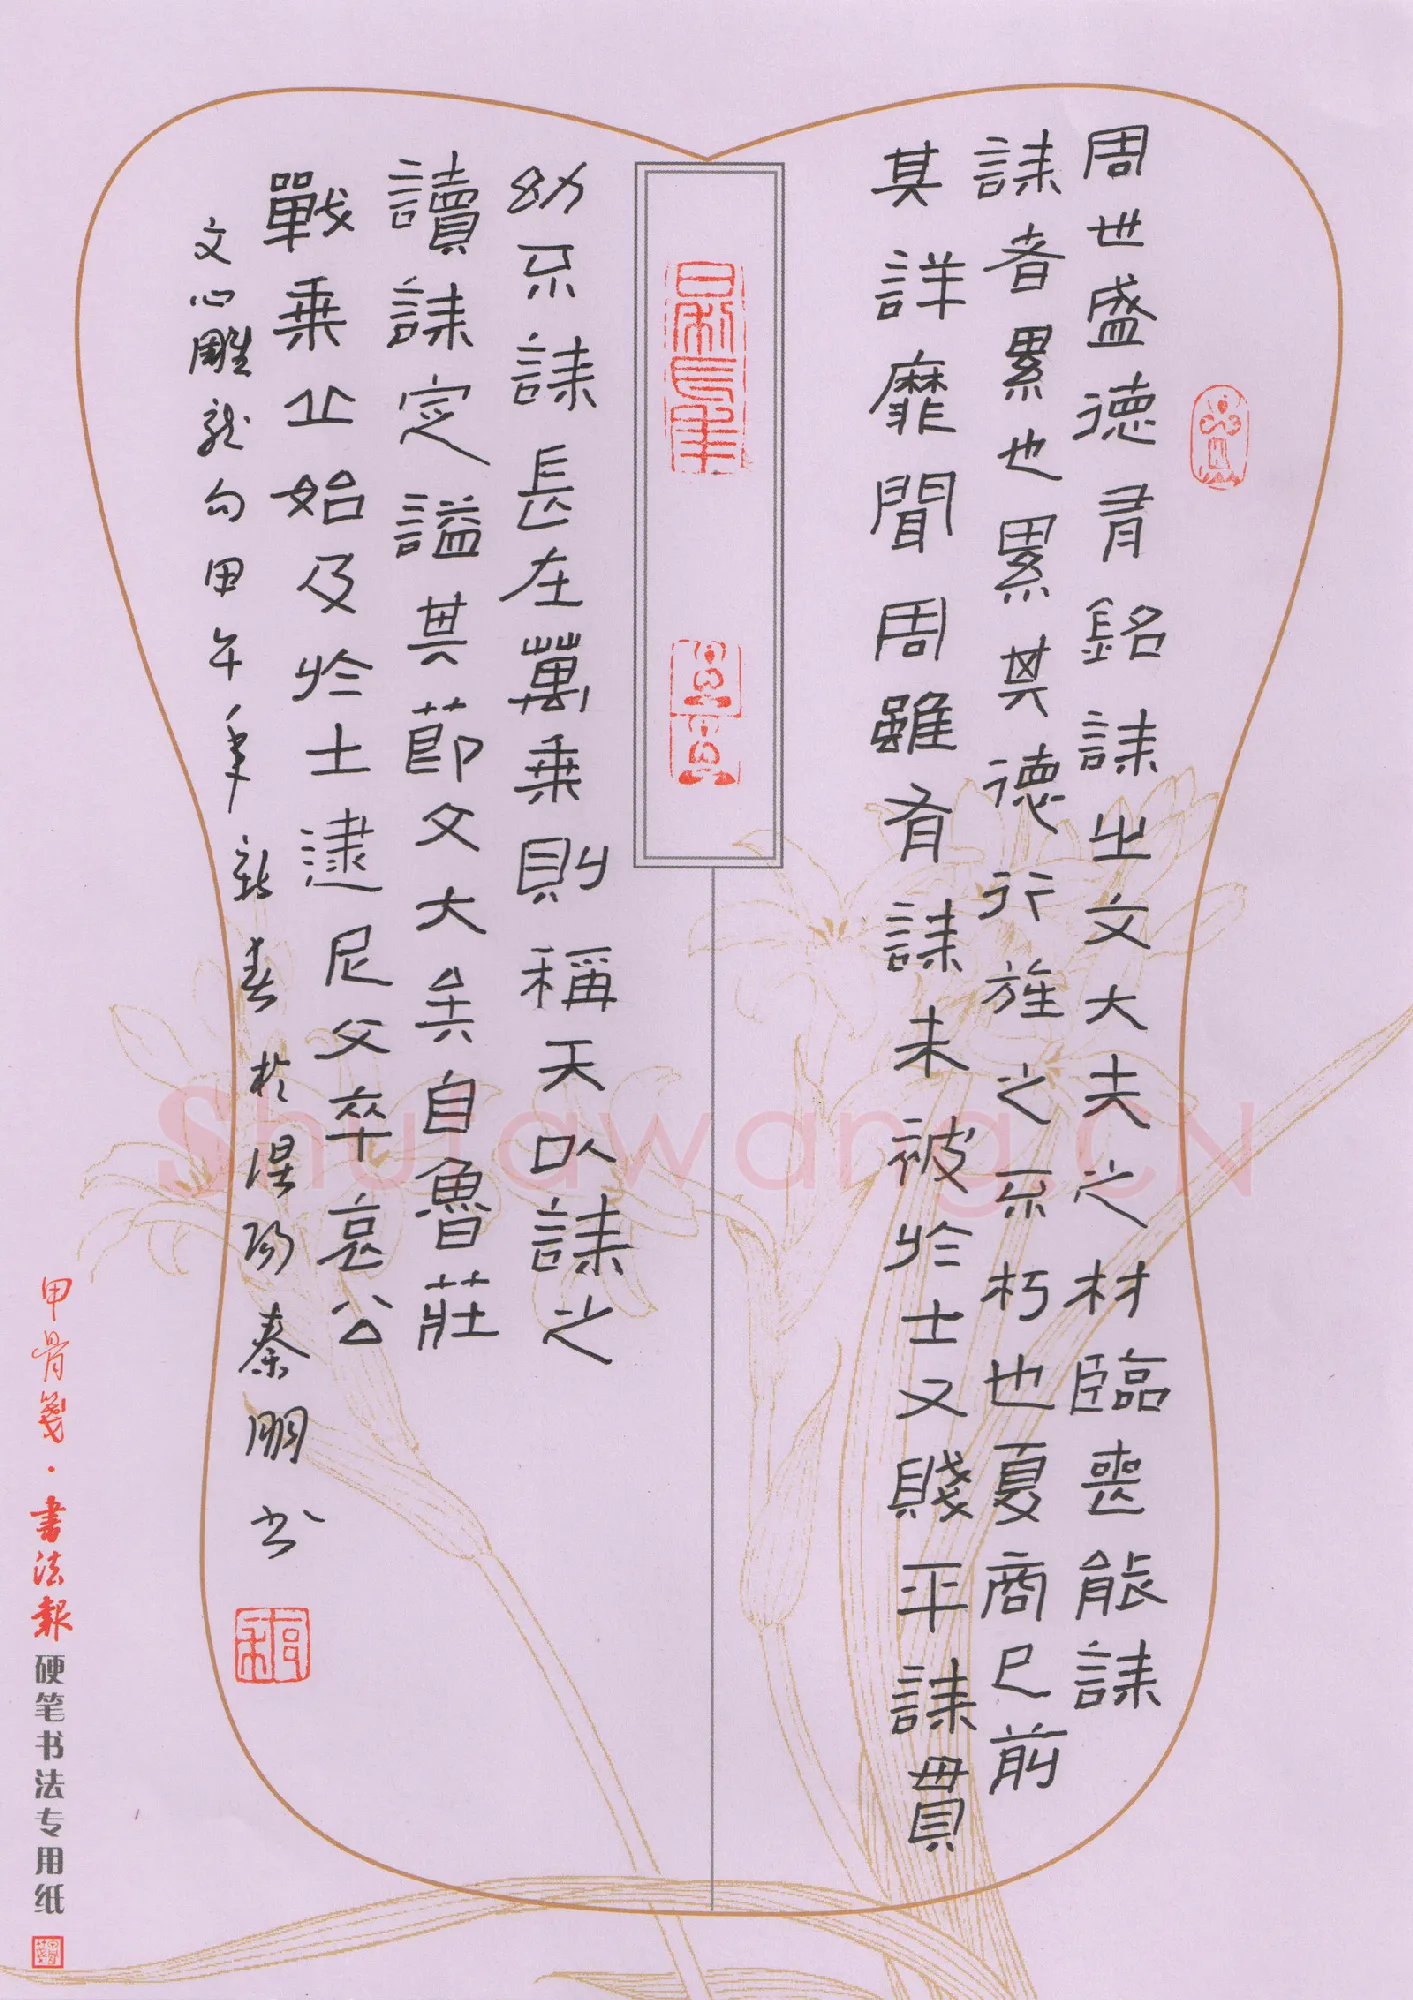 周世盛德有銘誄之文大夫之材臨喪能誄
誄者累也累其德行旌之不朽也夏商已前
其詳靡聞周雖有誄未被於士又賤不誄貴
幼不誄長在萬乘則稱天以誄之
讀誄定謚其節文大矣自魯莊
戰乘丘始及於士逮尼父卒哀公
文心雕龍句甲午年新春於陽秦朋书
甲骨箋·書法報硬笔书法专用纸
Shufawang.CN